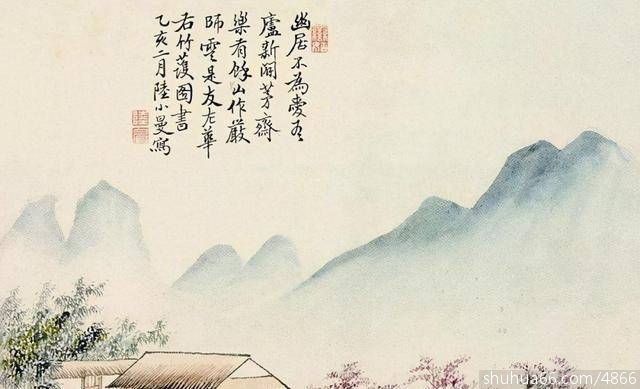 幽居不為愛吾
廬新開芳齋
樂有餘山作嚴
師雲是友左華
右竹護圖書
乙亥二月陸小曼寫
shuhua66.com/4866